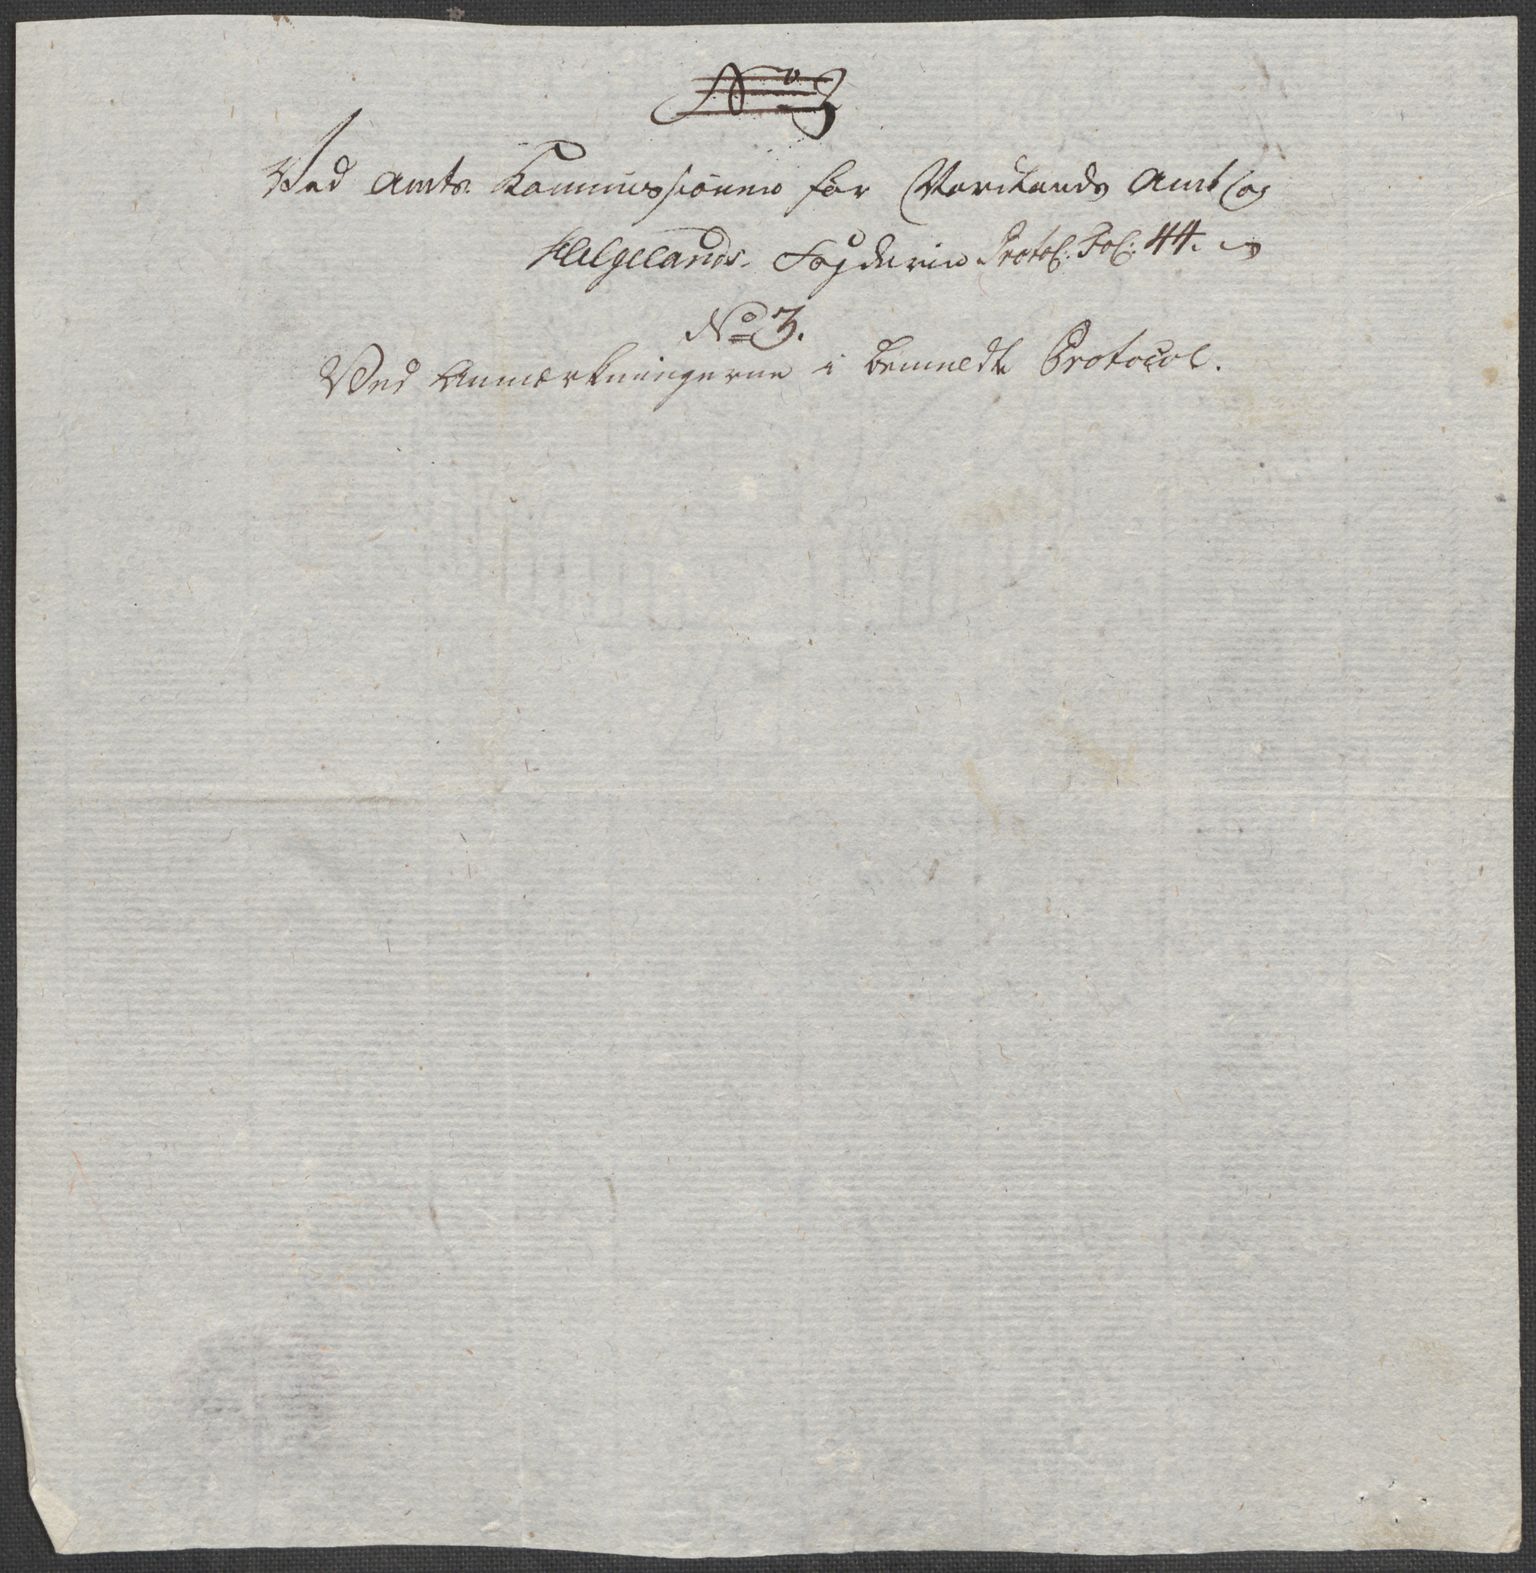 No 3
Ved Amts Kommissionen for Nordlands Amt og
Helgelands Fogderie Protoc: Fol: 44.
No 3.
Ved Anmærkningerne i bemeldte Protocol.